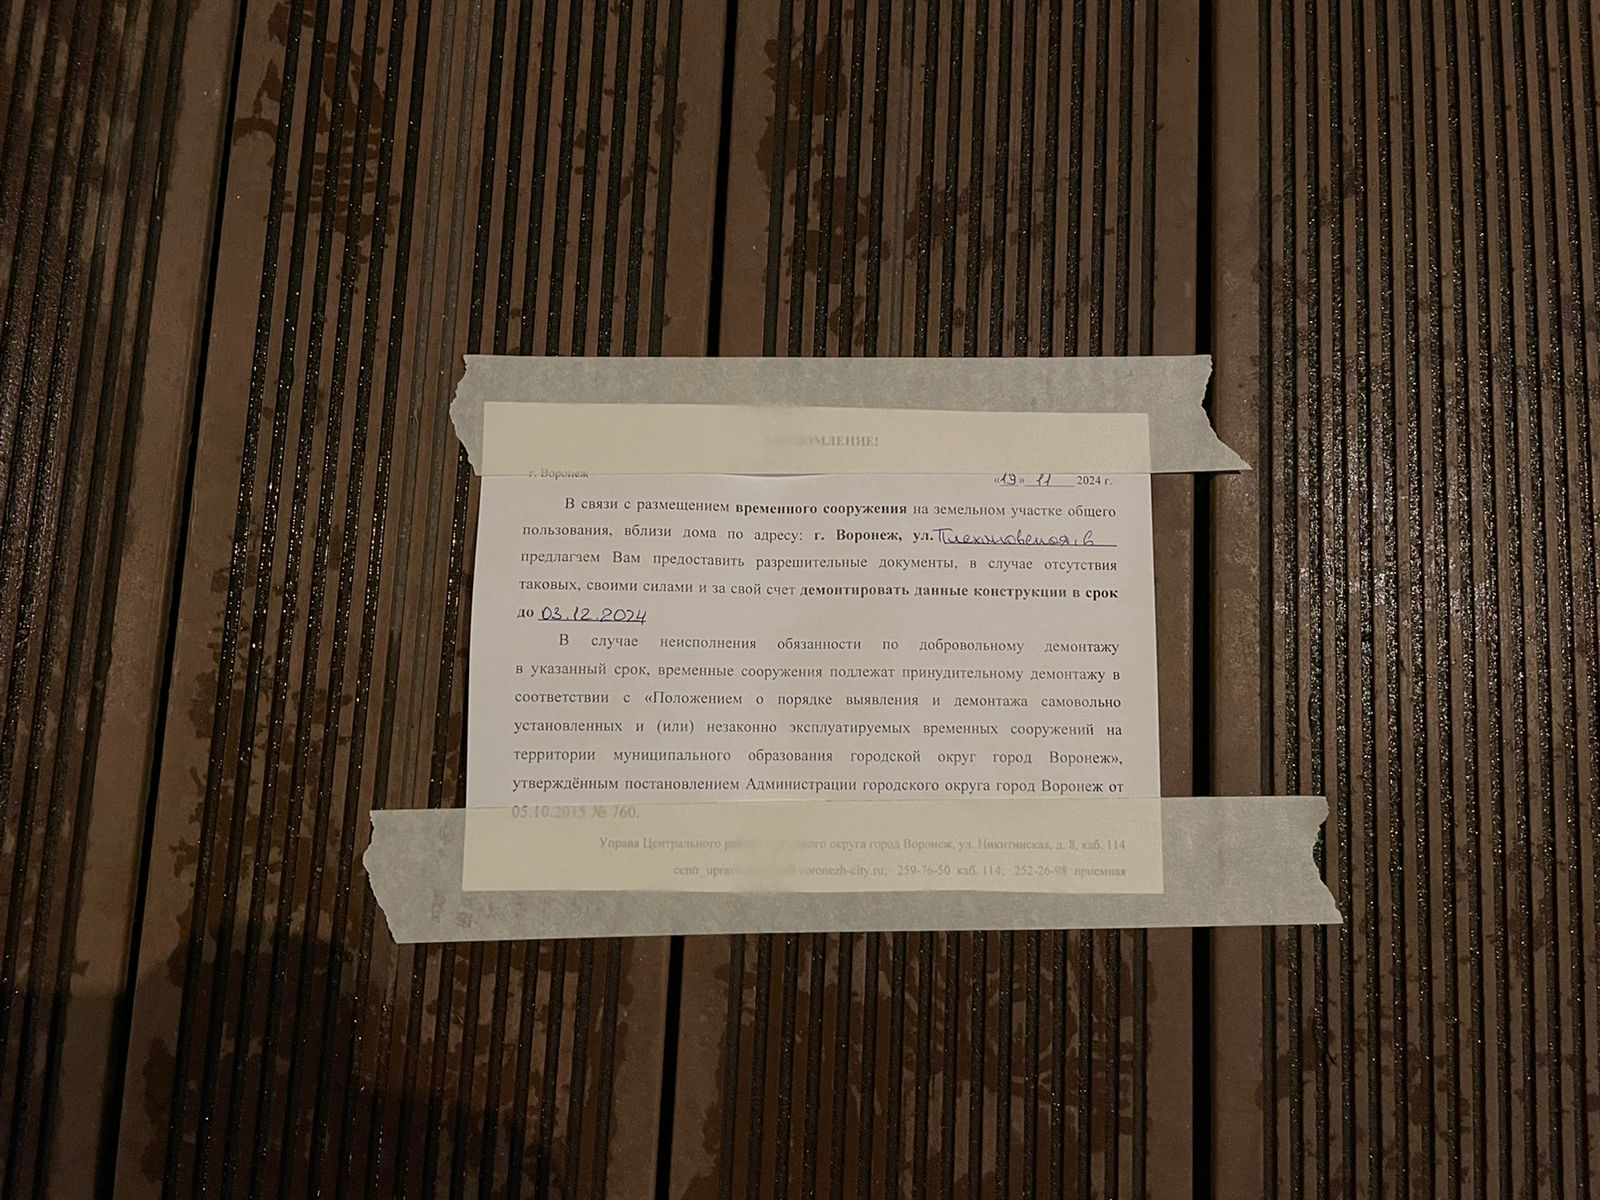 г. Воронеж «19» 11 2024 г.
В связи с размещением временного сооружения на земельном участке общего
пользования, вблизи дома по адресу: г. Воронеж, ул. Плехановская,
предлагаем Вам предоставить разрешительные документы, в случае отсутствия
таковых, своими силами и за свой счет демонтировать данные конструкции в срок
до 03.12.2024
В случае неисполнения обязанности по добровольному демонтажу
в указанный срок, временные сооружения подлежат принудительному демонтажу в
соответствии с «Положением о порядке выявления и демонтажа самовольно
установленных и (или) незаконно эксплуатируемых временных сооружений на
территории муниципального образования городской округ город Воронеж»,
утверждённым постановлением Администрации городского округа город Воронеж от
05.10.2015 № 760.
Управа Центрального округа город Воронеж, ул. Никитинская, д. 8, каб. 114
259-76-50 каб. 114; 252-26-98 приемная